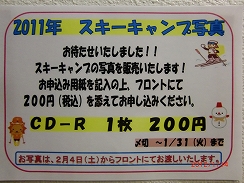 2011年 スキーキャンプ写真
お待たせいたしました!!
スキーキャンプの写真を販売いたします!
お申込み用紙を記入の上、フロントにて
200円(税込)を添えてお申し込みください。
CD-R 1枚 200円
〆切 ～1/31(火)まで
お写真は、2月4日(土)からフロントにてお渡しいたします。